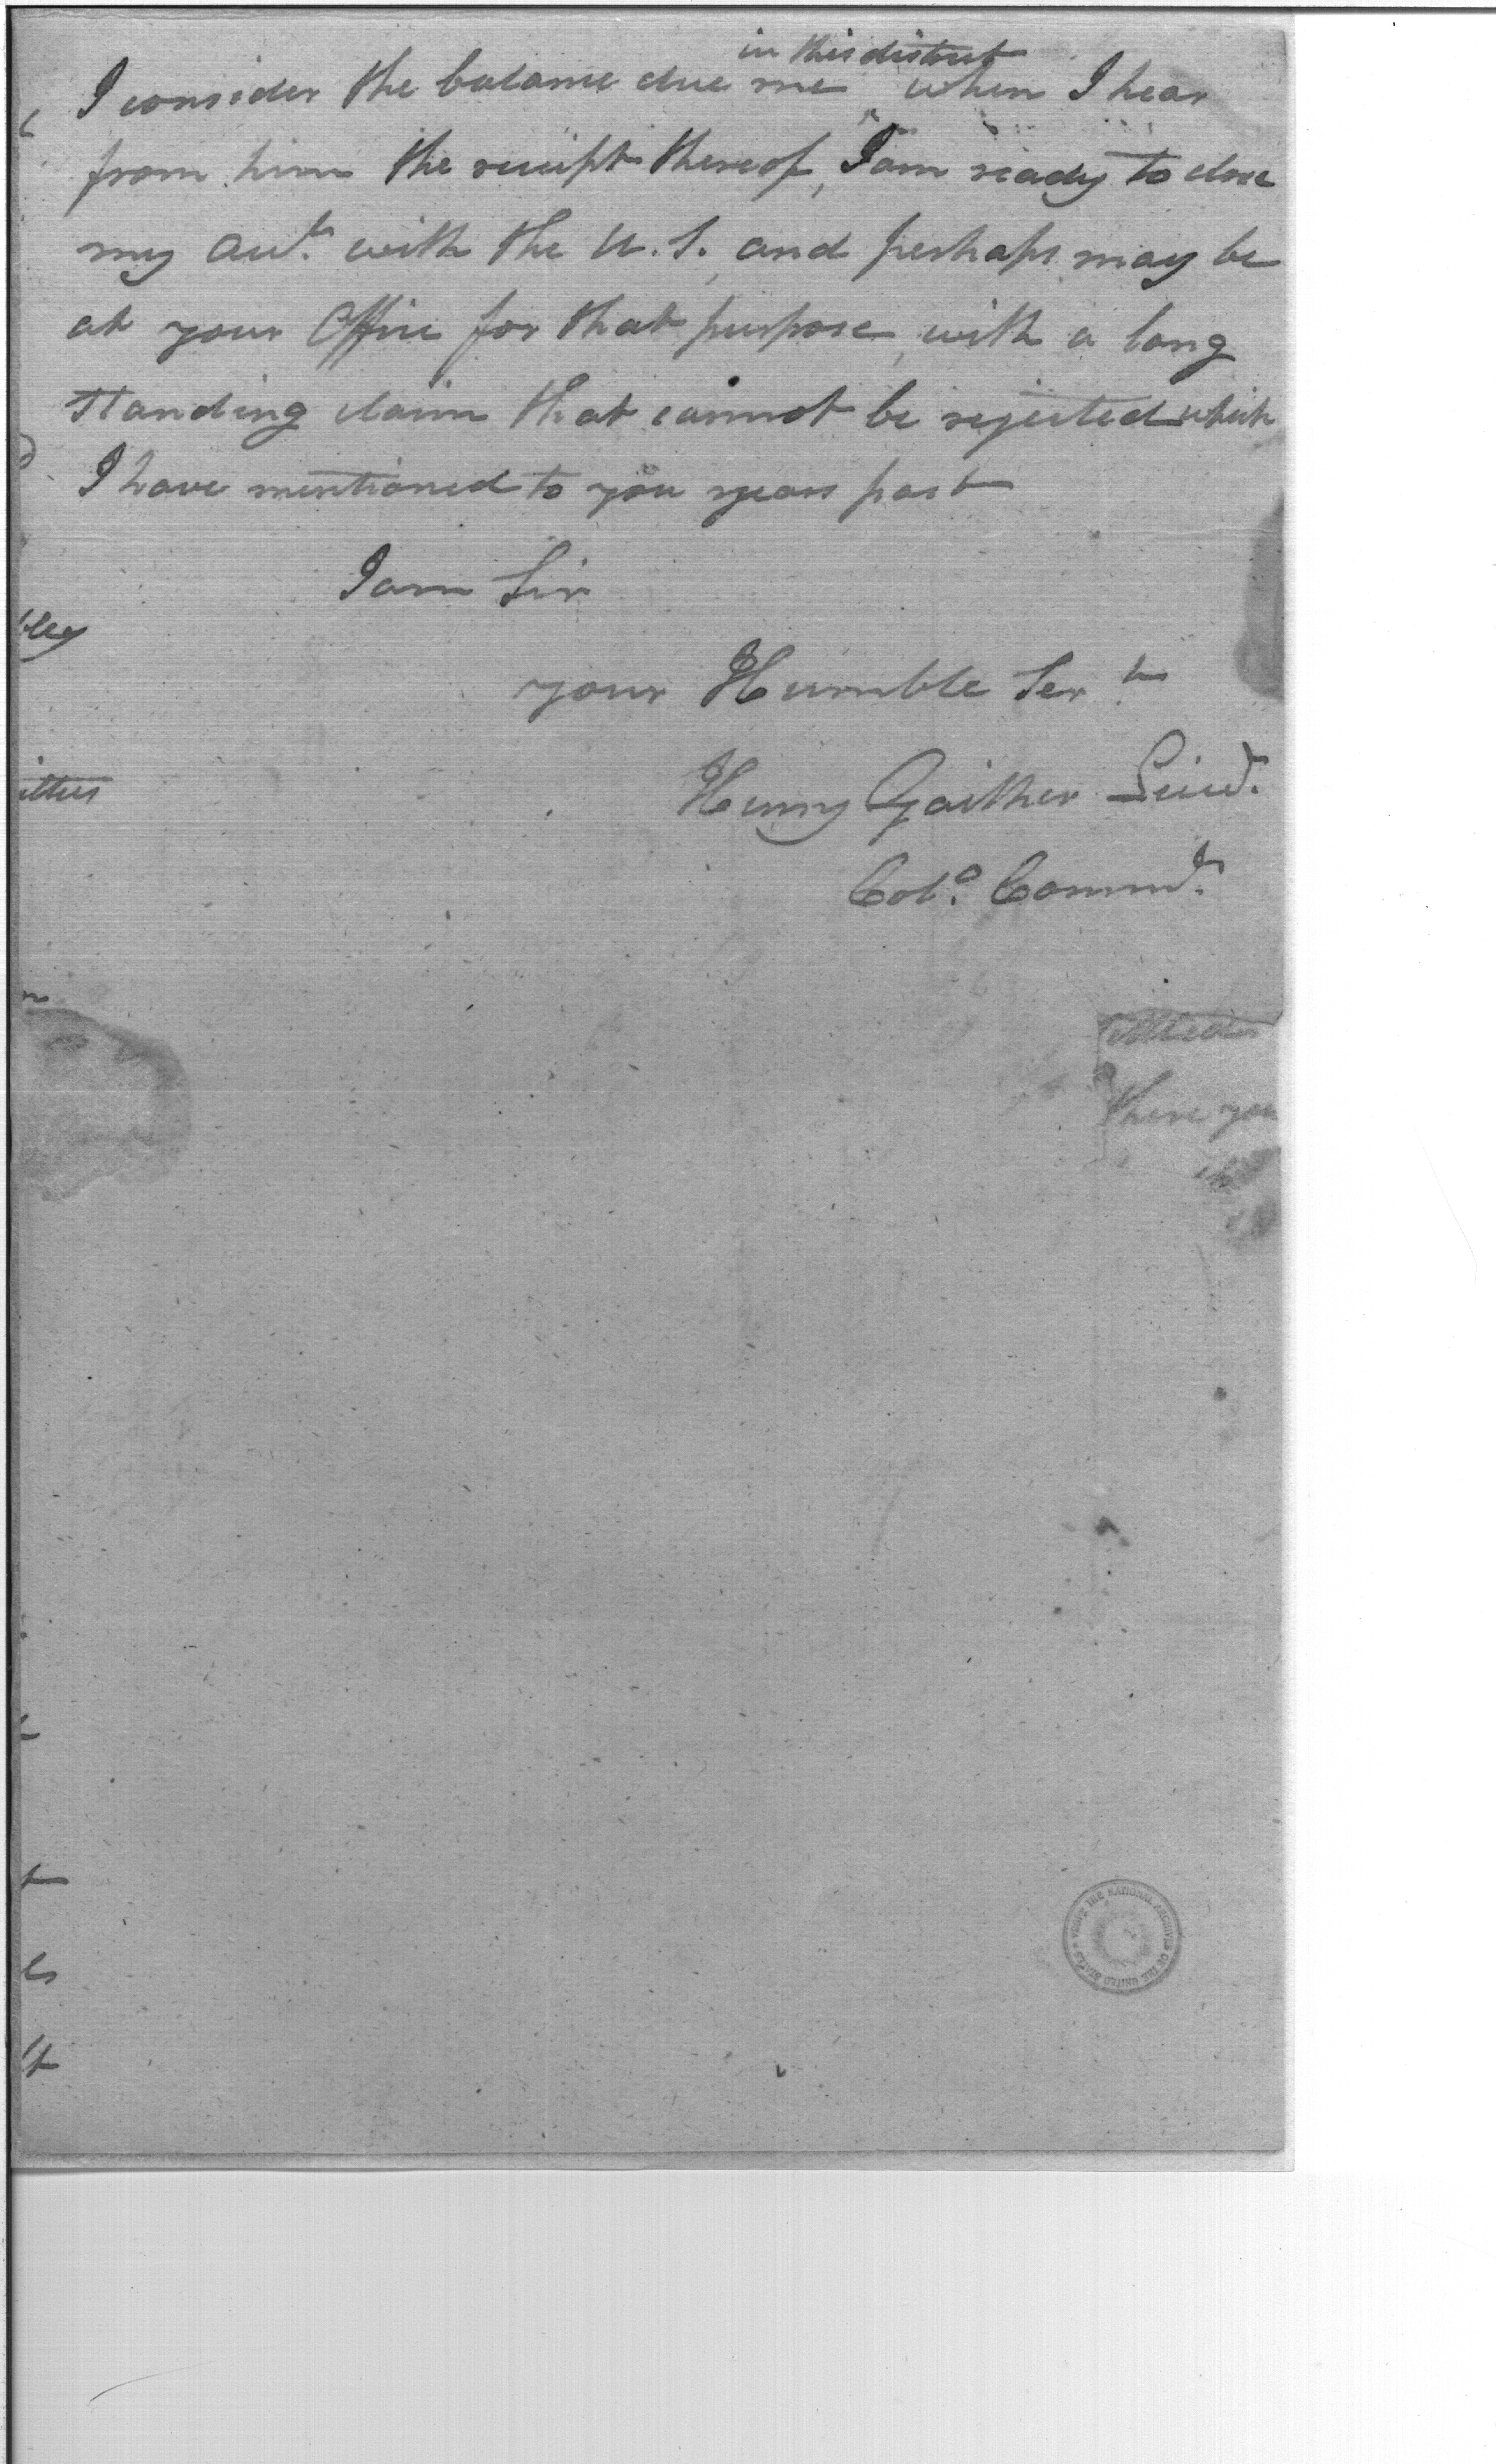 in this district
I consider the balance due me ^ when I hear
from him the receipt thereof, I am ready to close
my acct. with the U.S. and perhaps may be
at your Office for that purpose, with a long
standing claim that cannot be rejected which
I have mentioned to you years past
I am Sir
your Humble Sert
Henry Gaither Lieut.
Colo. Commdt.
there you
THE NATIONAL ARCHIVES OF THE UNITED STATES